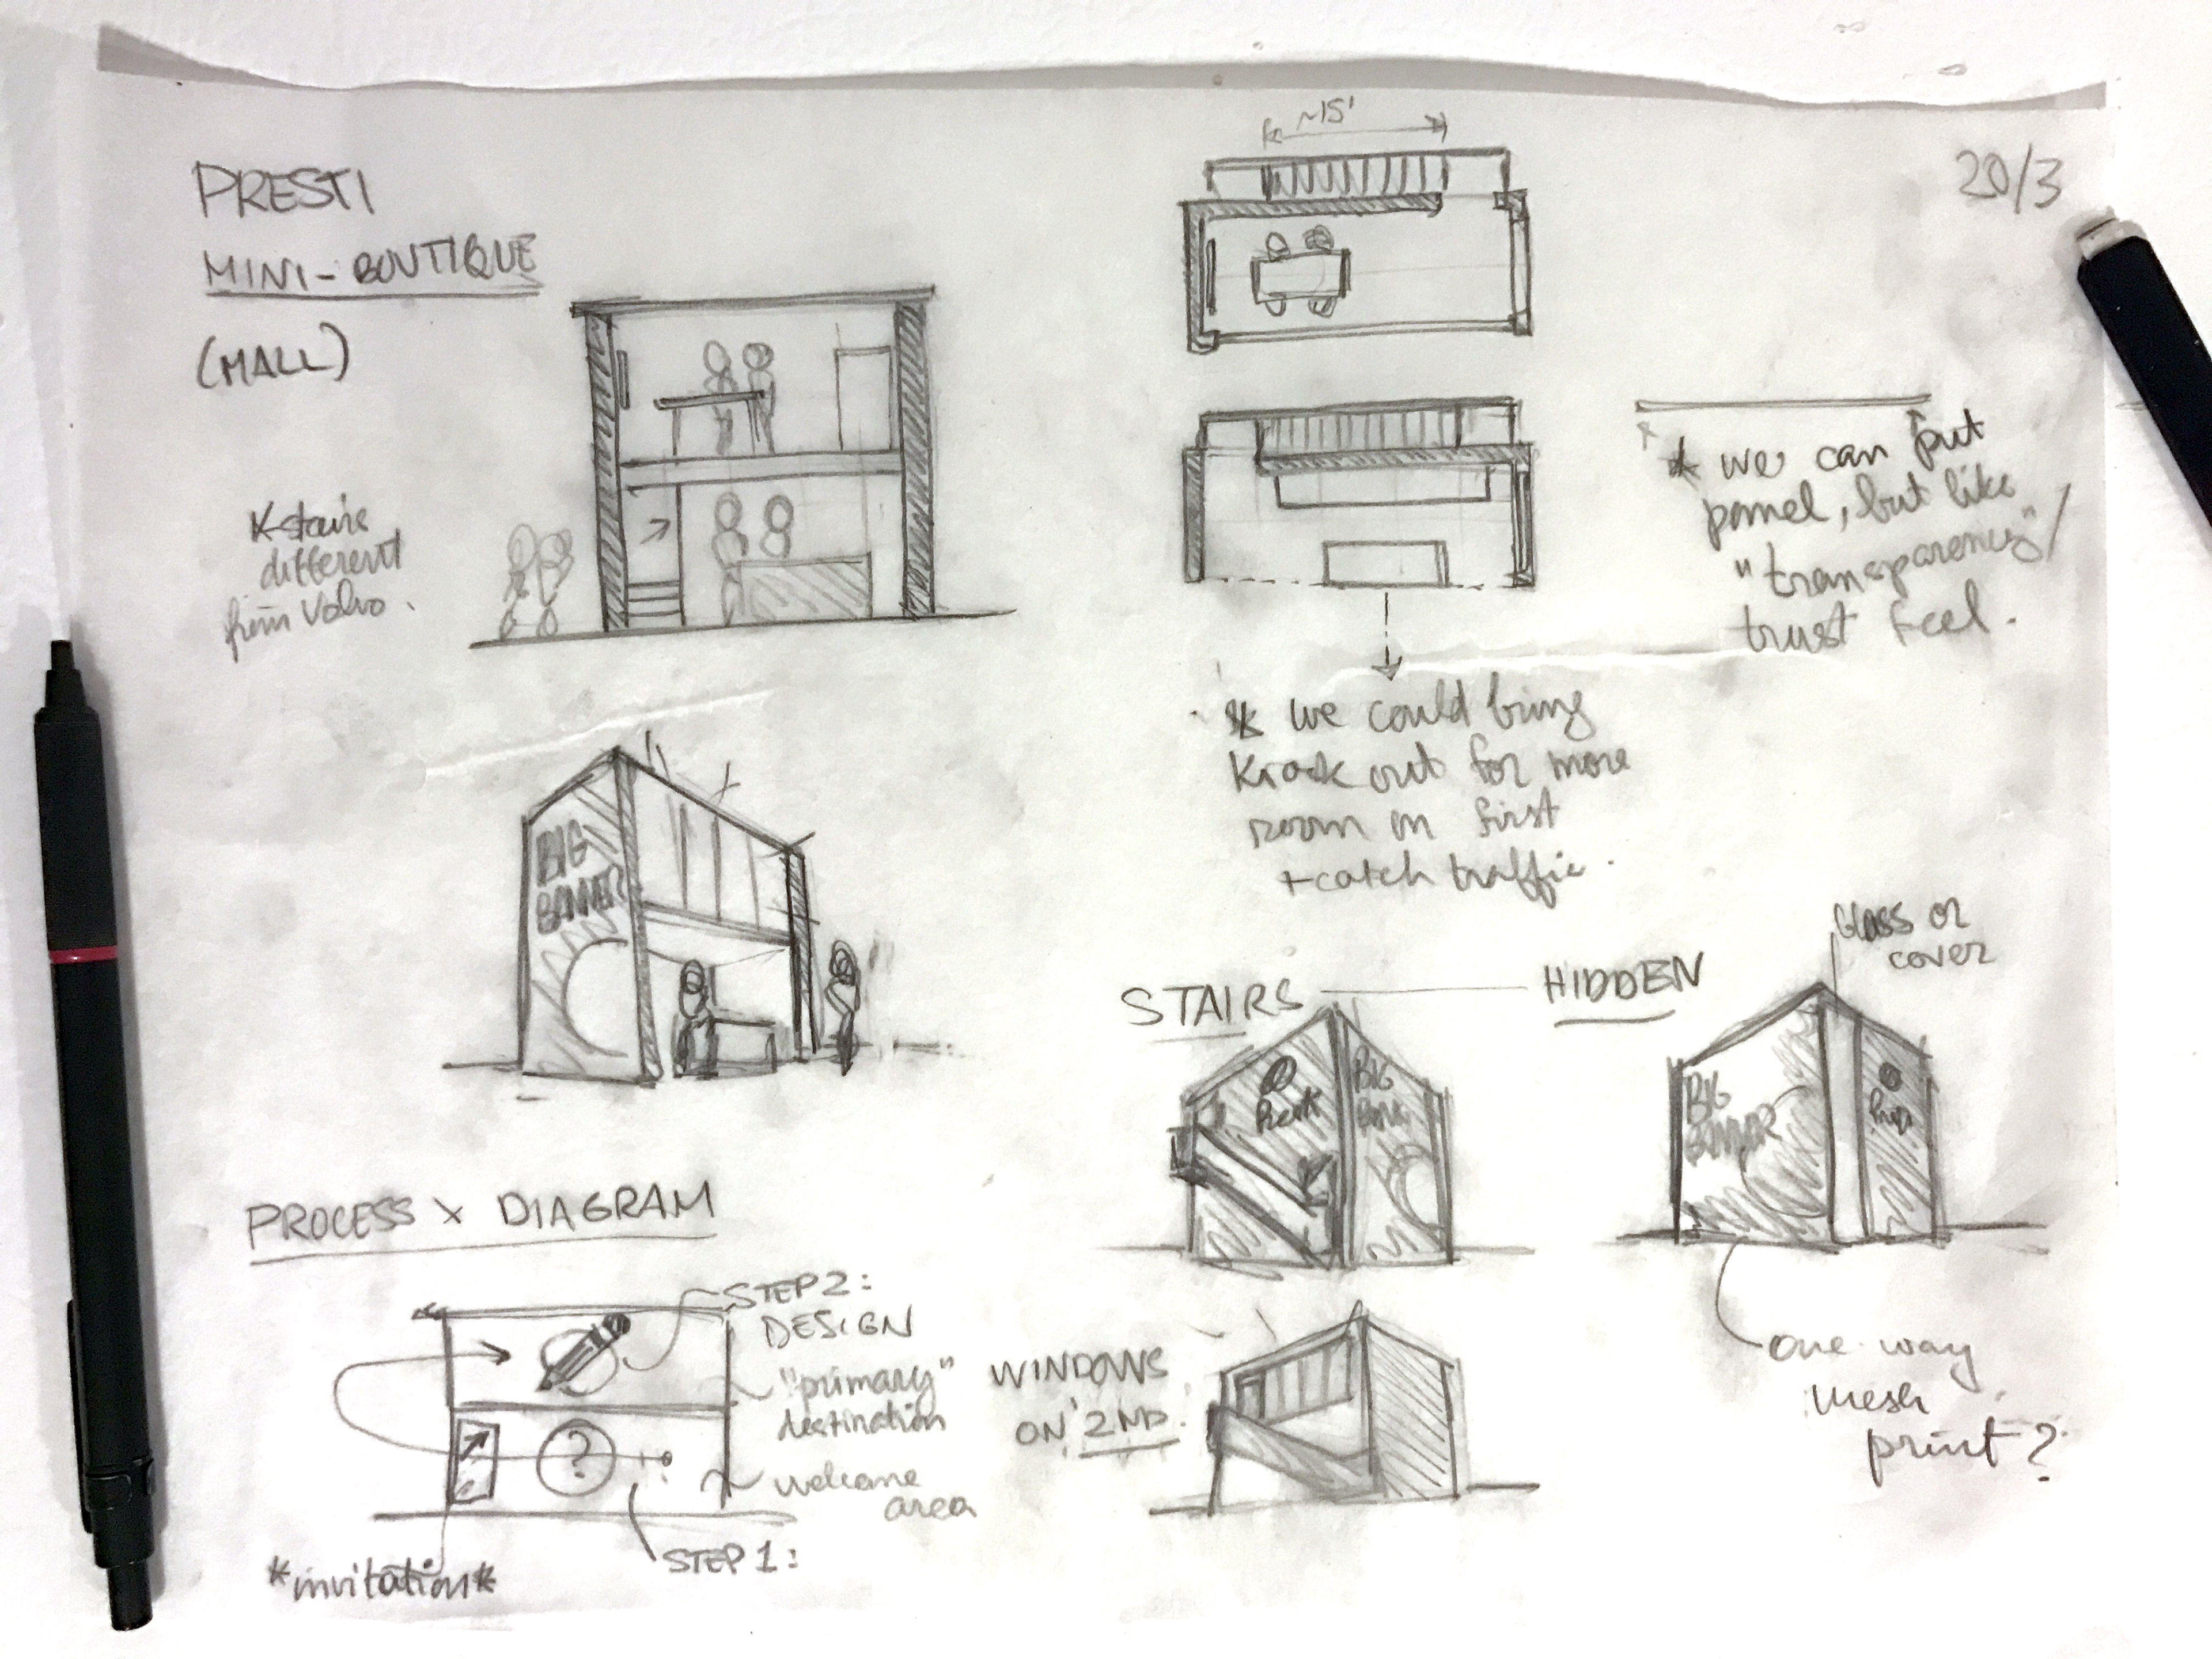 PRESTI
MINI-BOUTIQUE
(MALL)
20/3
~15'
stairs
different
from Volvo.
* we can put
panel, but like
"transparency"/
trust feel.
* we could bring
out for more
room on first
+ catch traffic.
BIG
BANNER
STAIRS
HIDDEN
Glass or
cover
BIG
BIG
BANNER
one way
mesh
print?
WINDOWS
ON 2ND.
PROCESS x DIAGRAM
STEP 2:
DESIGN
"primary"
destination
welcome
area
?
STEP 1:
*invitation*